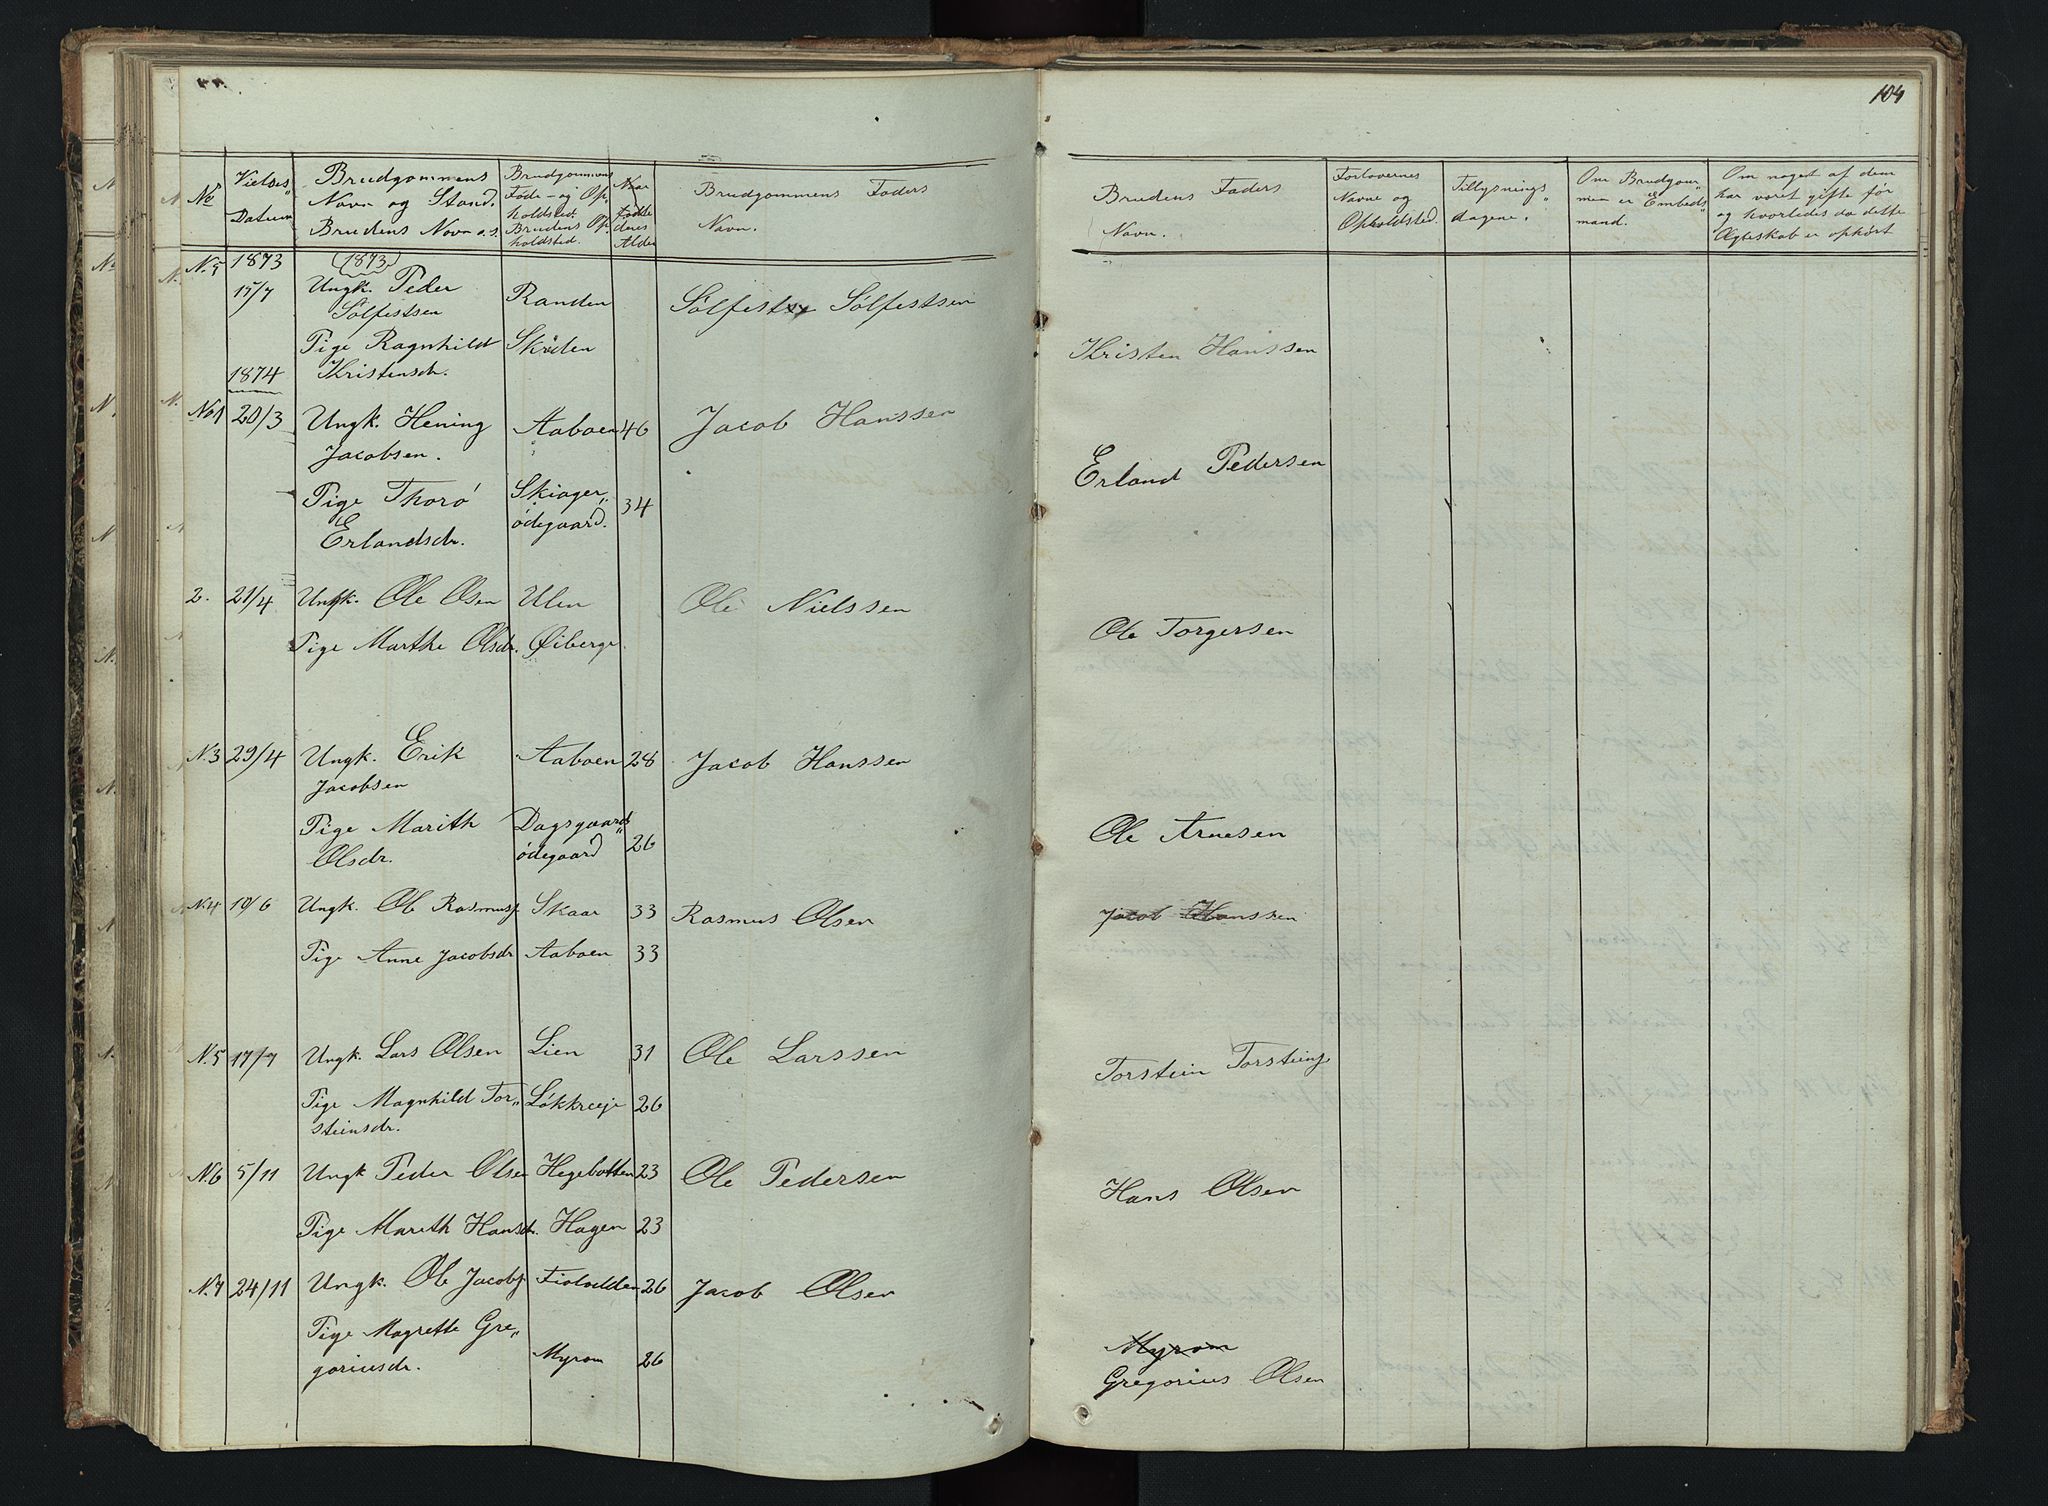 104
No
Vielses
Datum
Brudgommens
Navn og Stand.
Brudens Navn o.s.
Brudgommens
Føde- og Op-
holdsted.
Brudens Op-
holdsted.
Naar
fødte
deres
Alder
Brudgommens Faders
Navn.
Brudens Faders
Navn.
Forlovernes
Navne og
Opholdsted.
Tillysnings
dagene.
Om Brudgom-
men er Embeds
mand.
Om noget af dem
har været gifte før
og hvorledes da dette
Ægteskab er ophørt
N.5 1873 1873
17/7 Ungk. Peder Randen
Sølfestsen Sølfest Sølfestsen
Tige Ragnhild Skriden Kristen Hanssen
1874 Kristensdr.
No1 20/3 Ungk. Hening Aaboen 46 Jacob Hanssen
Jacobsen. Erland Pedersen
Pige Thorø Skiager 34
Erlandsdr. ødegaard.
2. 21/4 Ungk. Ole Olsen Ulen Ole Nielssen
Pige Marthe Olsdr. Øiberge Ole Torgersen
N.3 29/4 Ungk. Erik Aaboen 28 Jacob Hanssen
Jacobsen
Pige Marith Dagsgaards 26 Ole Arnesen
Olsdr. ødegaard
N.4 10/6 Ungk. Ole Rasmuss. Skaar 33 Rasmus Olsen Jacob Hanssen
Pige Anne Jacobsdr Aaboen 33
N.5 17/7 Ungk. Lars Olsen Lien 31 Ole Larssen Torstein Torsteins
Pige Magnhild Tor- Løkkreeje 26
steinsdr.
N.6 5/11 Ungk Peder Olsen Hegebotten 23 Ole Pedersen Hans Olsen
Pige Marith Hansdr. Hagen 23
N.7 24/11 Ungk. Ole Jacobs. 26 Jacob Olsen
Pige Magrette Gre- Myrom
goriusdr. Myrom 26 Gregorius Olsen